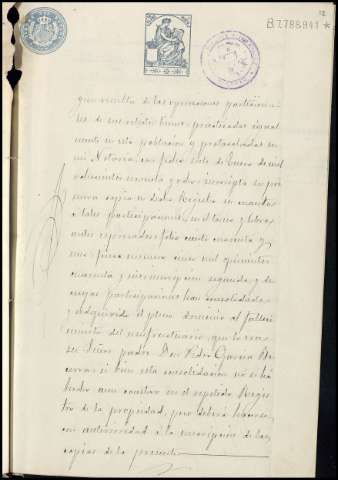 12
B7788941*
que resulta de las operaciones particiona-
les de sus citados bienes practicadas igual
mente en esta población y protocoladas en
mi Notaría con fecha siete de Enero de mil
ochocientos noventa y dos, inscripta su pri
mera copia en dicho Registro en cuanto
a tales participaciones, en el tomo y libro
antes expresados folio ciento cincuenta y
uno, finca número cinco mil quinientos
cuarenta y inscripción segunda, y de
cuyas participaciones han consolidado
y adquirido el pleno dominio al falleci
miento del usufructuario, que lo era
su Señor padre Don Pedro García Be
cerra; si bien esta consolidación no se ha
hecho aun constar en el repetido Regis
tro de la propiedad, pero deberá hacerse
con anterioridad á la inscripción de las
copias de la presente